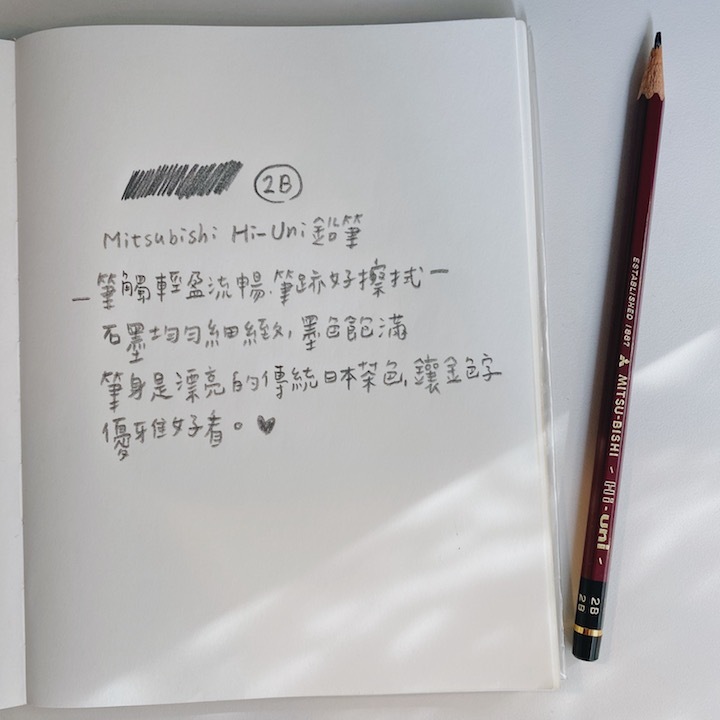 2B
Mitsubishi Hi-Uni鉛筆
—筆觸輕盈流暢、筆跡好擦拭—
石墨均勻細緻,墨色飽滿
筆身是漂亮的傳統日本茶色,鑲金色字
優雅好看。♥
ESTABLISHED 1887 MITSU-BISHI ~ Hi-uni ~ 2B
2B